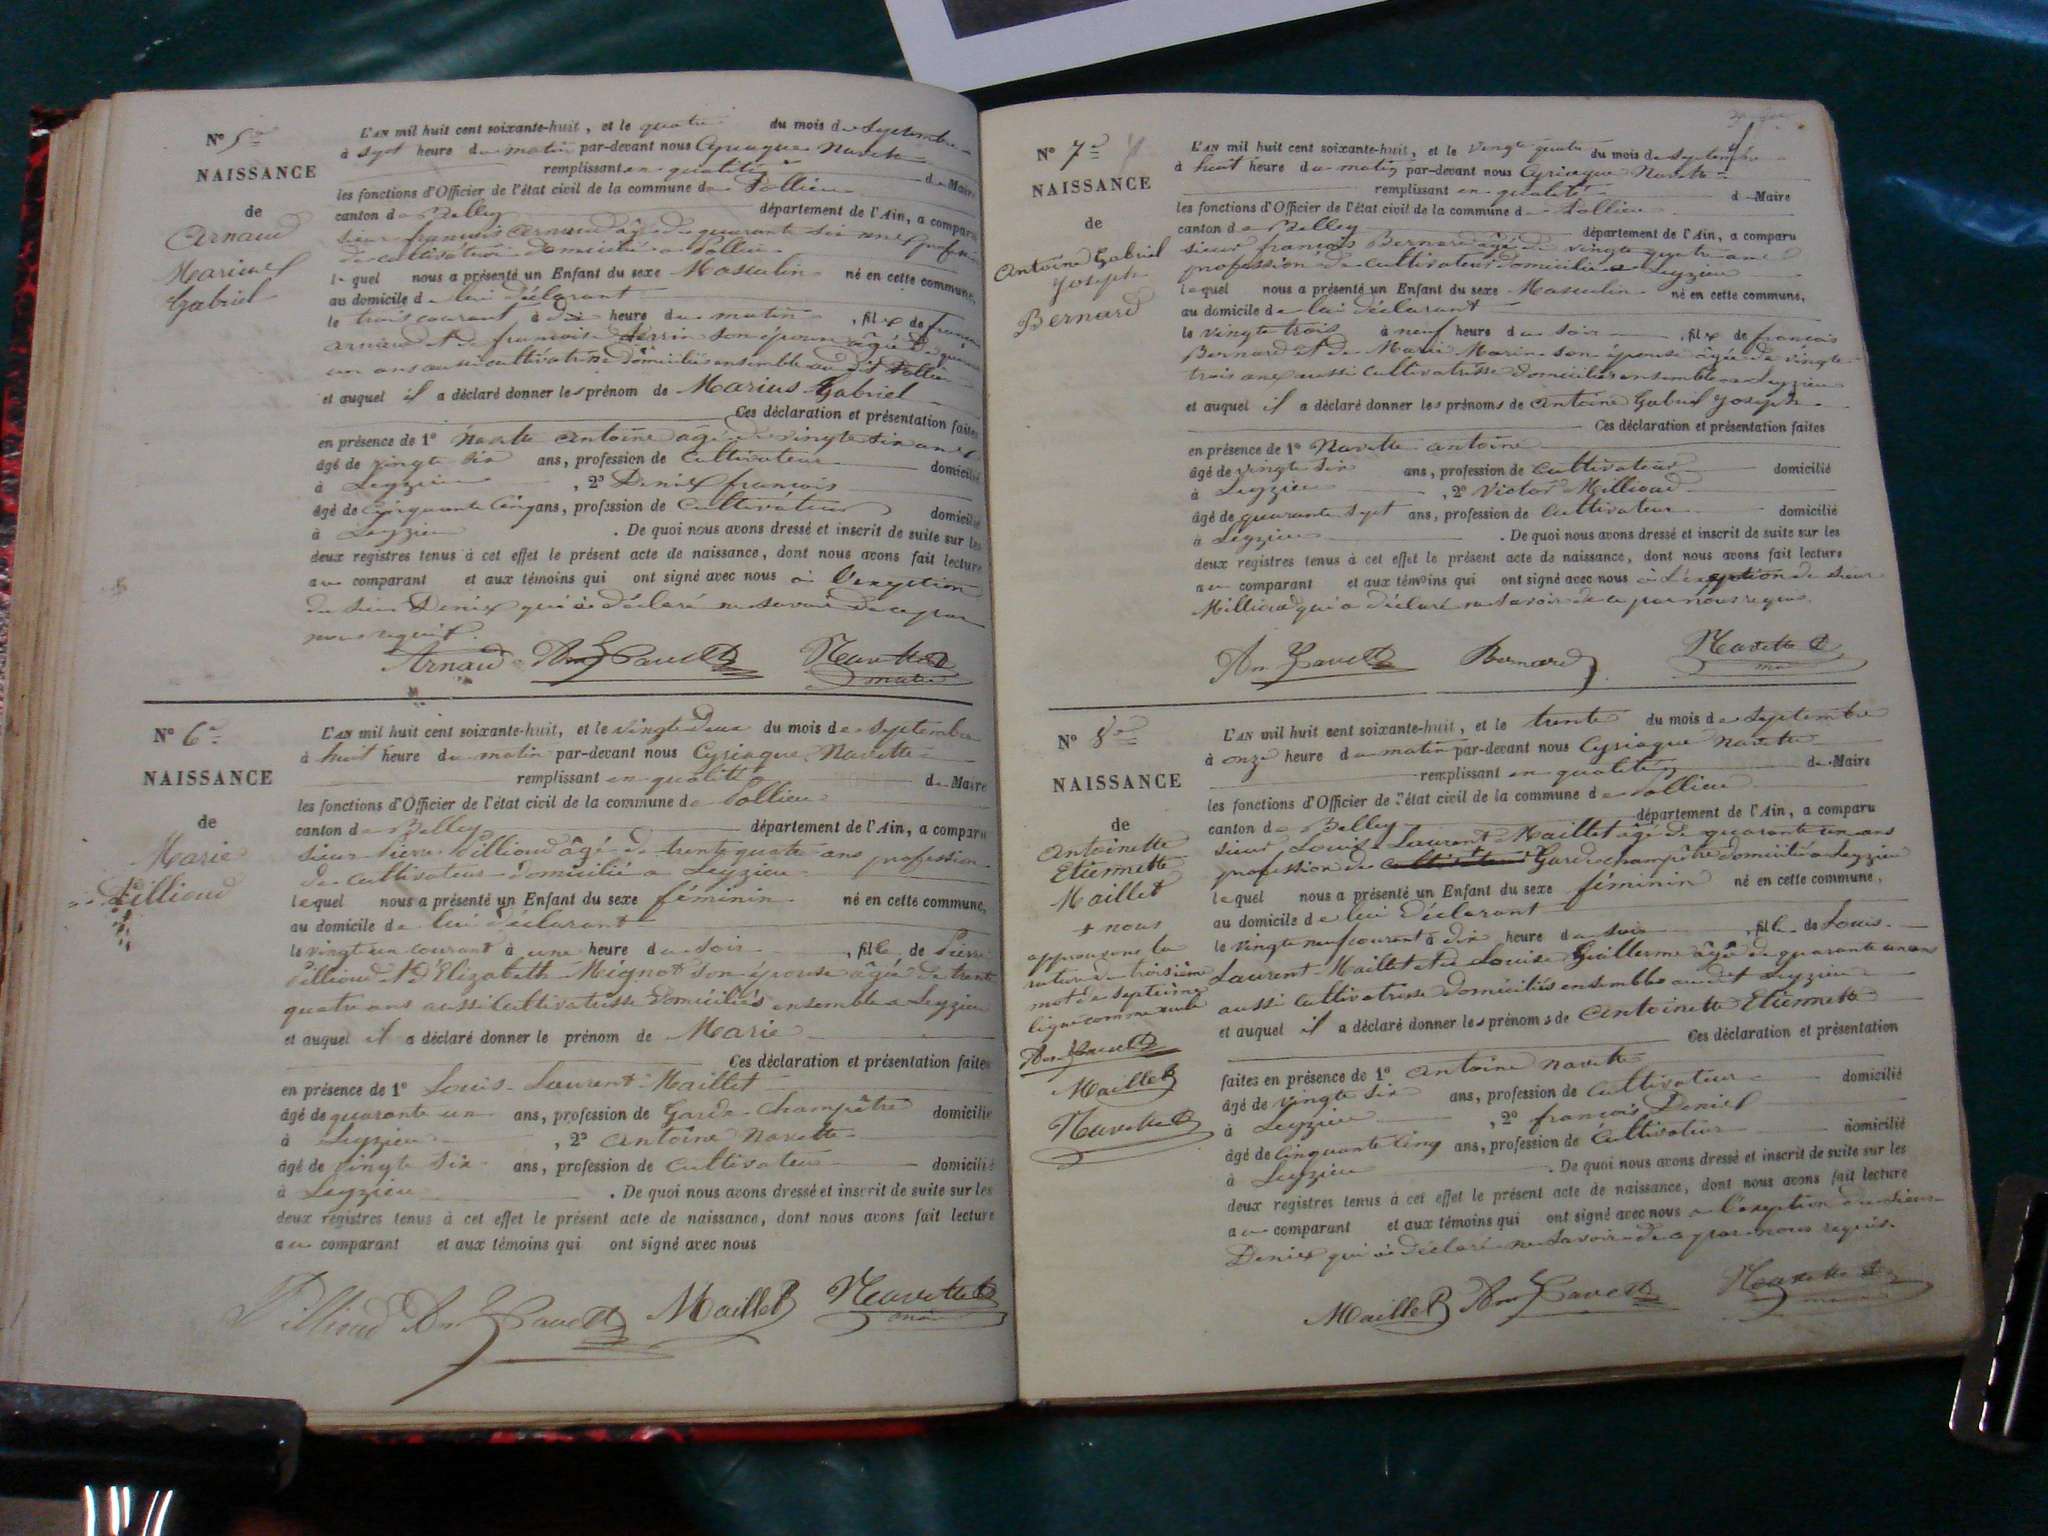 N° 5
NAISSANCE
de
Arnaud
Marius
Gabriel
L'AN mil huit cent soixante-huit, et le quatre du mois de Septembre
à sept heure du matin par-devant nous Cyriaque Navette
remplissant en qualité de Maire
les fonctions d'Officier de l'état civil de la commune de Pollieu
canton de Belley département de l'Ain, a comparu
sieur françois Arnaud âgé de quarante six ans profession
de cultivateur domicilié a Pollieu
lequel nous a présenté un Enfant du sexe Masculin né en cette commune,
au domicile de lui déclarant
le trois courant à dix heure du matin, fils de françois
Arnaud et de françoise son épouse âgée de quarante
un ans aussi cultivatrice domiciliés ensemble au dit Pollieu
et auquel il a déclaré donner les prénom de Marius Gabriel
Ces déclaration et présentation faites
en présence de 1° Navette Antoine âgé de vingte six ans
âgé de vingte six ans, profession de Cultivateur domicilié
à Leyzieu, 2° Denix françois
âgé de Cinquante Cinq ans, profession de Cultivateur domicilié
à Leyzieu. De quoi nous avons dressé et inscrit de suite sur les
deux registres tenus à cet effet le présent acte de naissance, dont nous avons fait lecture
au comparant et aux témoins qui ont signé avec nous à l'exeption
du sieur Denix qui a déclaré ne savoir de ce par
nous requit.
Arnaud Navette
maire
N° 6
NAISSANCE
de
Marie
Pillioud
L'AN mil huit cent soixante-huit, et le vingte deux du mois de Septembre
à huit heure du matin par-devant nous Cyriaque Navette
remplissant en qualité de Maire
les fonctions d'Officier de l'état civil de la commune de Pollieu
canton de Belley département de l'Ain, a comparu
sieur Pierre Pillioud âgé de trente quatre ans profession
de cultivateur domicilié a Leyzieu
lequel nous a présenté un Enfant du sexe féminin né en cette commune,
au domicile de lui déclarant
le vingt un courant à une heure du soir, fille de Pierre
Pillioud et d'Elizabeth Mignot son épouse âgée de trente
quatre ans aussi Cultivatrisse domiciliés ensemble a Leyzieu
et auquel il a déclaré donner le prénom de Marie
Ces déclaration et présentation faites
en présence de 1° Louis Laurent Maillet
âgé de quarante un ans, profession de Garde-Champêtre domicilié
à Leyzieu, 2° Antoine Navette
âgé de vingte six ans, profession de Cultivateur domicilié
à Leyzieu. De quoi nous avons dressé et inscrit de suite sur les
deux registres tenus à cet effet le présent acte de naissance, dont nous avons fait lecture
au comparant et aux témoins qui ont signé avec nous
Pillioud Maillet Navette
maire
N° 7
NAISSANCE
de
Antoine Gabriel
Joseph
Bernard
L'AN mil huit cent soixante-huit, et le vingte quatre du mois de Septembre
à huit heure du matin par-devant nous Cyriaque Navette
remplissant en qualité de Maire
les fonctions d'Officier de l'état civil de la commune de Pollieu
canton de Belley département de l'Ain, a comparu
sieur françois Bernard âgé de vingte quatre ans
profession de Cultivateur domicilié a Leyzieu
lequel nous a présenté un Enfant du sexe Masculin né en cette commune,
au domicile de lui déclarant
le vingte trois à neuf heure du soir, fils de françois
Bernard et de Marie Marin son épouse âgée de vingte
trois ans aussi Cultivatrisse domiciliés ensemble a Leyzieu
et auquel il a déclaré donner les prénoms de Antoine Gabriel Joseph
Ces déclaration et présentation faites
en présence de 1° Navette Antoine
âgé de vingte six ans, profession de Cultivateur domicilié
à Leyzieu, 2° Victor Millioud
âgé de quarante sept ans, profession de Cultivateur domicilié
à Leyzieu. De quoi nous avons dressé et inscrit de suite sur les
deux registres tenus à cet effet le présent acte de naissance, dont nous avons fait lecture
au comparant et aux témoins qui ont signé avec nous à l'exeption de sieur
Millioud qui a déclaré ne savoir de ce par nous requis.
Bernard Navette
N° 8
NAISSANCE
de
Antoinette
Etiennette
Maillet
+ nous
approuvons la
rature du troisième
mot de septième
ligne comme nule
Maillet
Navette
L'AN mil huit cent soixante-huit, et le trente du mois de Septembre
à onze heure du matin par-devant nous Cyriaque Navette
remplissant en qualité de Maire
les fonctions d'Officier de l'état civil de la commune de Pollieu
canton de Belley département de l'Ain, a comparu
sieur Louis Laurent Maillet âgé de quarante un ans
profession de cultivateur Garde champêtre domicilié a Leyzieu
lequel nous a présenté un Enfant du sexe féminin né en cette commune,
au domicile de lui déclarant
le vingte neuf courant à dix heure du soir, fille de Louis
Laurent Maillet et de Louise Guillerme âgée de quarante un ans
aussi Cultivatrisse domiciliés ensemble audit Leyzieu
et auquel il a déclaré donner les prénoms de Antoinette Etiennette
Ces déclaration et présentation
faites en présence de 1° Antoine Navette
âgé de vingte six ans, profession de Cultivateur domicilié
à Leyzieu, 2° françois Denix
âgé de Cinquante Cinq ans, profession de Cultivateur domicilié
à Leyzieu. De quoi nous avons dressé et inscrit de suite sur les
deux registres tenus à cet effet le présent acte de naissance, dont nous avons fait lecture
au comparant et aux témoins qui ont signé avec nous a l'exeption du sieur
Denix qui a déclaré ne savoir de ce par nous requis.
Maillet Navette